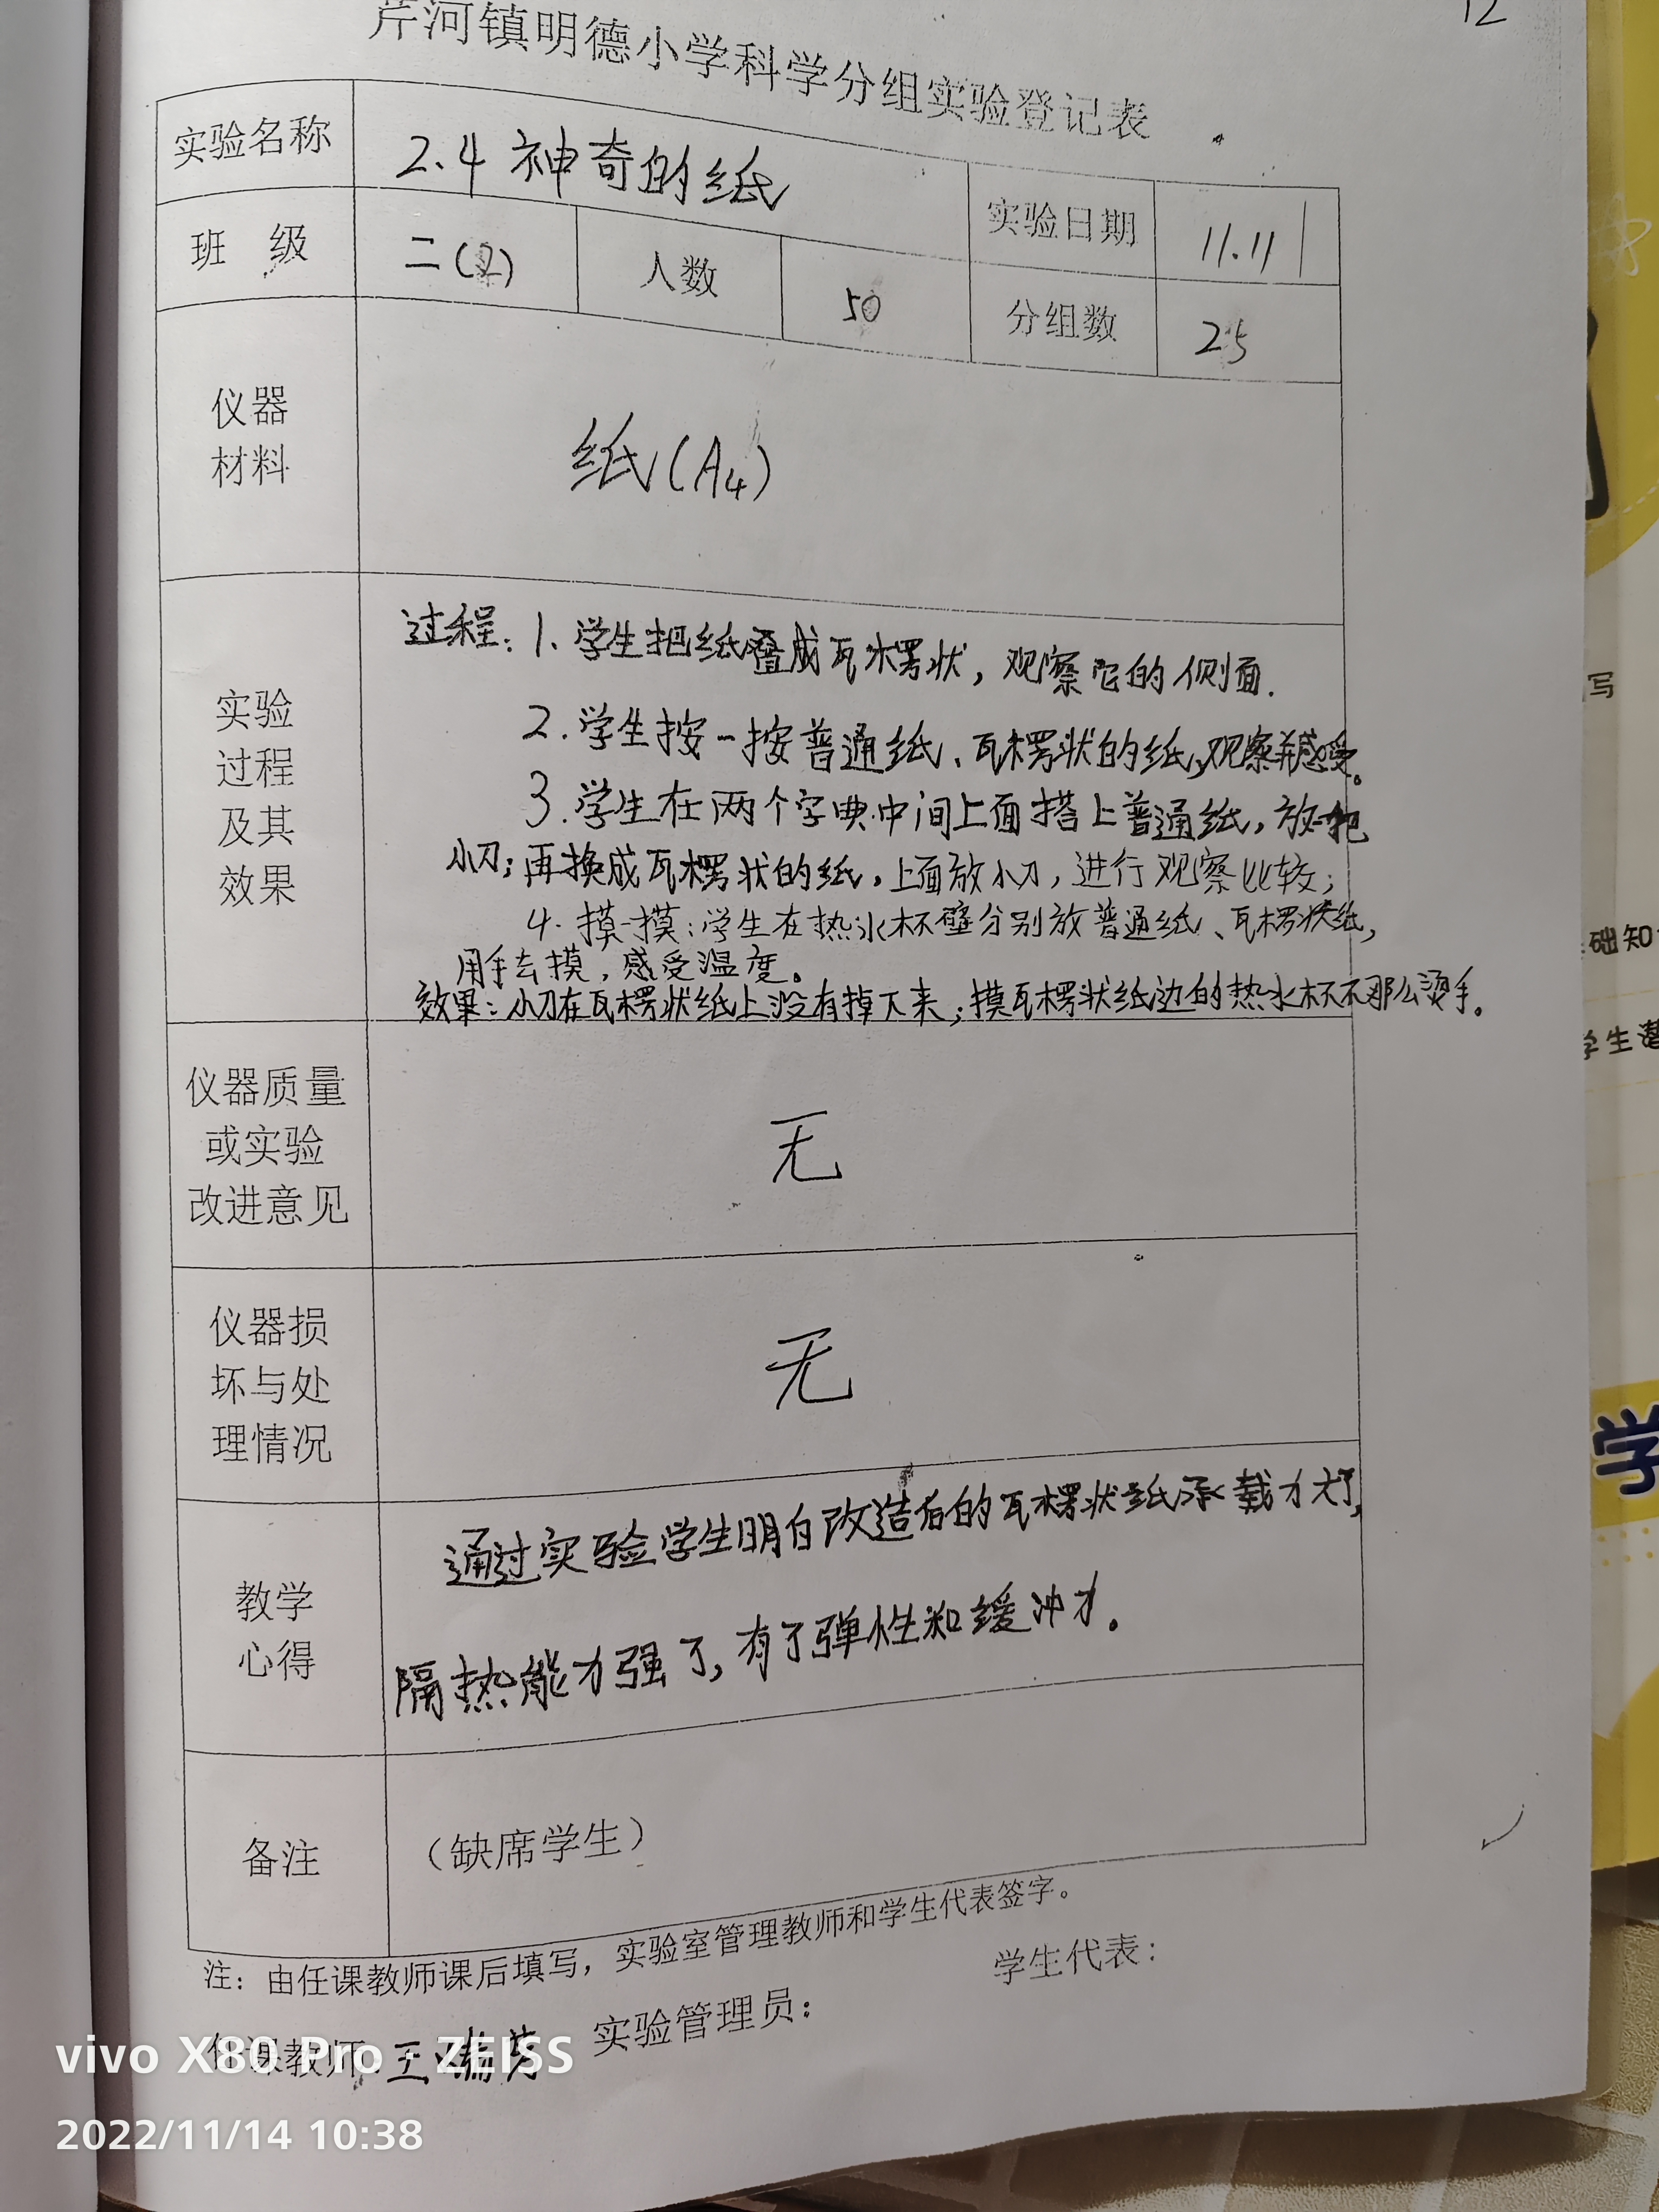 12
芹河镇明德小学科学分组实验登记表
实验名称 2.4 神奇的纸 实验日期 11.11
班 级 二(2) 人数 50 分组数 25
仪器
材料
纸(A4)
实验
过程
及其
效果
过程：1.学生把纸叠成瓦楞状，观察它的侧面.
2.学生按一按普通纸、瓦楞状的纸,观察并感受。
3.学生在两个字典中间上面搭上普通纸，放一把
小刀；再换成瓦楞状的纸，上面放小刀，进行观察比较；
4.摸一摸：学生在热水杯壁分别放普通纸、瓦楞状纸，
用手去摸，感受温度。
效果：小刀在瓦楞状纸上没有掉下来；摸瓦楞状纸边的热水杯不那么烫手。
仪器质量
或实验
改进意见
无
仪器损
坏与处
理情况
无
教学
心得
通过实验学生明白改造后的瓦楞状纸承载力大了，
隔热能力强了，有了弹性和缓冲力。
备注
（缺席学生）
注：由任课教师课后填写，实验室管理教师和学生代表签字。
任课教师: 王 实验管理员： 学生代表：
vivo X80 Pro · ZEISS
2022/11/14 10:38
写
础知
学生潜
学